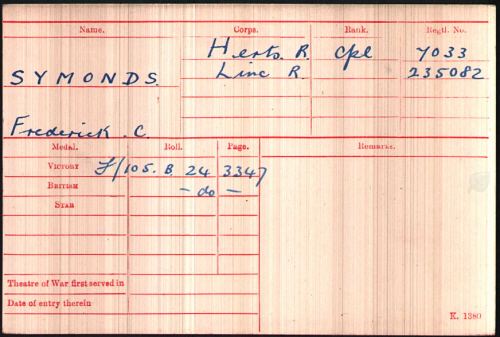 Name. Corps. Rank. Regtl. No.
Herts. R. Cpl 7033
SYMONDS. Linc R. 235082
Frederick . C.
Medal. Roll. Page. Remarks.
VICTORY J/105. B 24 3347
BRITISH - do -
STAR
Theatre of War first served in
Date of entry therein
K. 1380